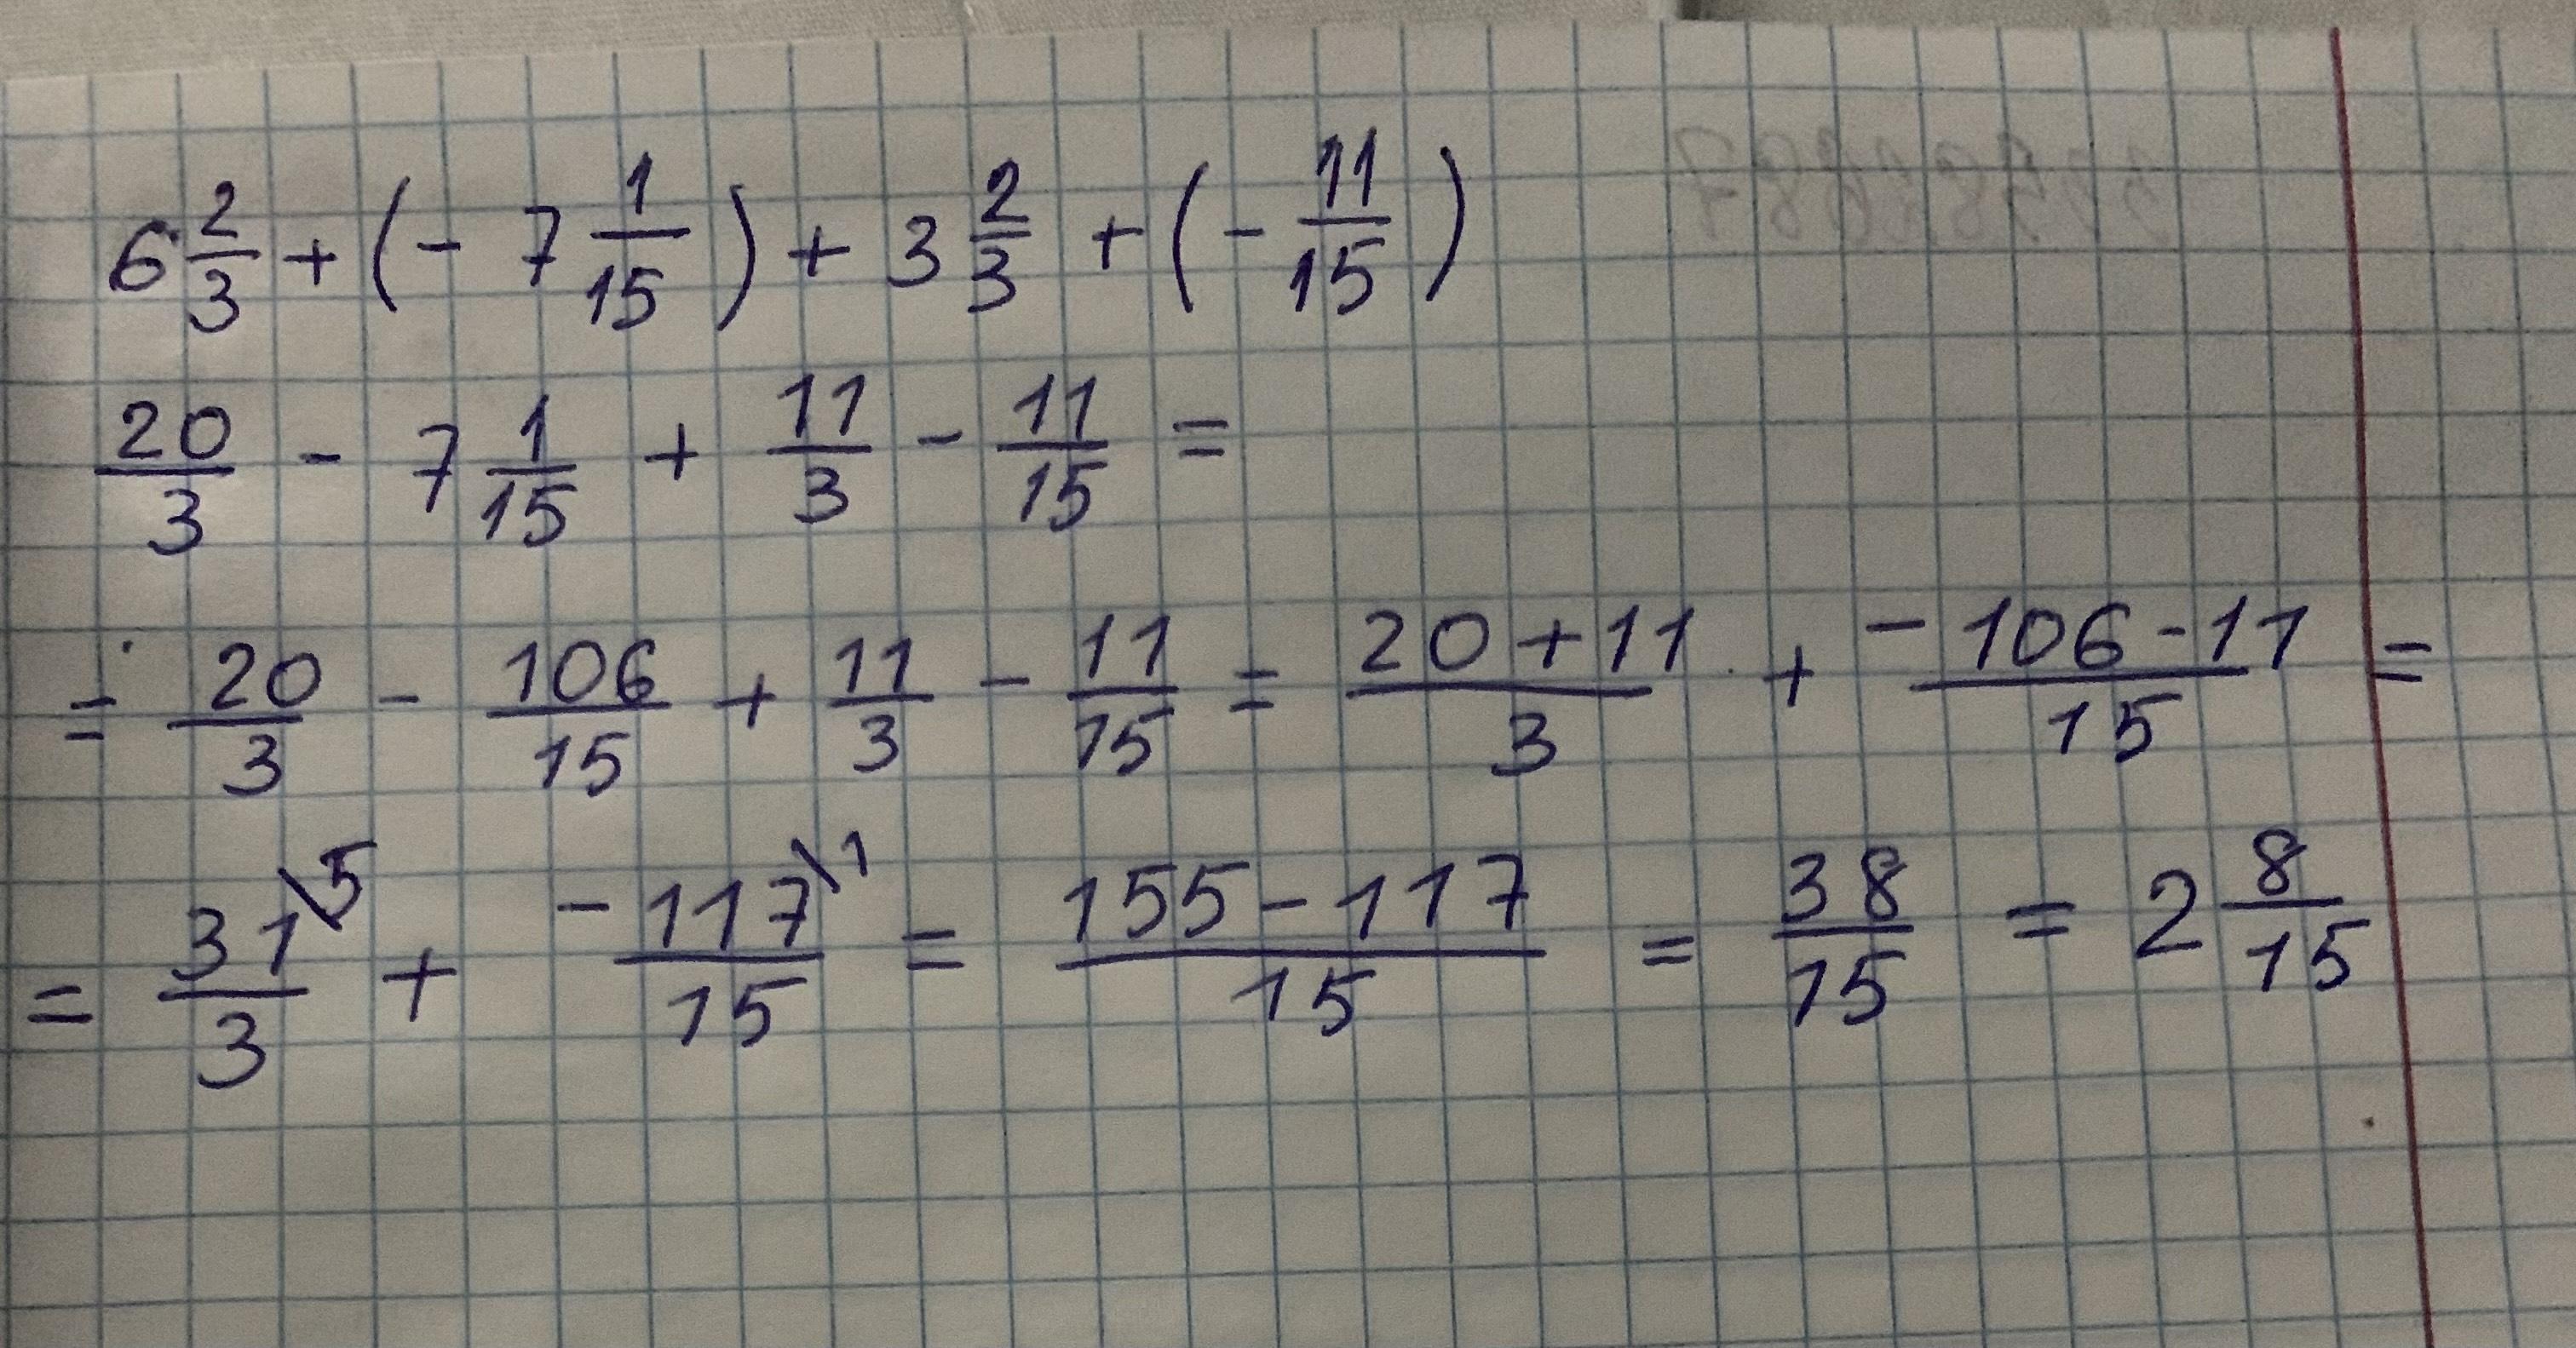 6 2/3 + (- 7 1/15) + 3 2/3 + (- 11/15)
20/3 - 7 1/15 + 11/3 - 11/15 =
= 20/3 - 106/15 + 11/3 - 11/15 = 20+11/3 + -106-11/15 =
= 31\5/3 + -117\1/15 = 155-117/15 = 38/15 = 2 8/15